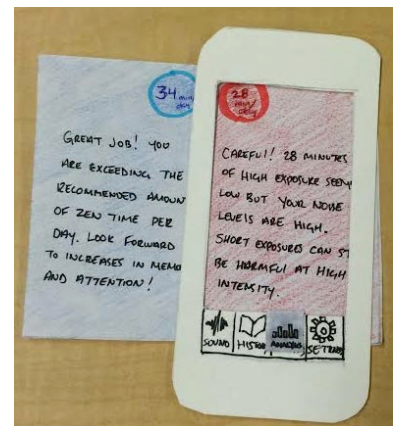 34 min/
day
GREAT JOB! YOU
ARE EXCEEDING THE
RECOMMENDED AMOUN
OF ZEN TIME PER
DAY. LOOK FORWARD
TO INCREASES IN MEMO
AND ATTENTION!
28
min/
day
CAREFUL! 28 MINUTES
OF HIGH EXPOSURE SEEM
LOW BUT YOUR NOISE
LEVELS ARE HIGH.
SHORT EXPOSURES CAN ST
BE HARMFUL AT HIGH
INTENSITY.
SOUND HISTOR ANALYSIS SETTINGS